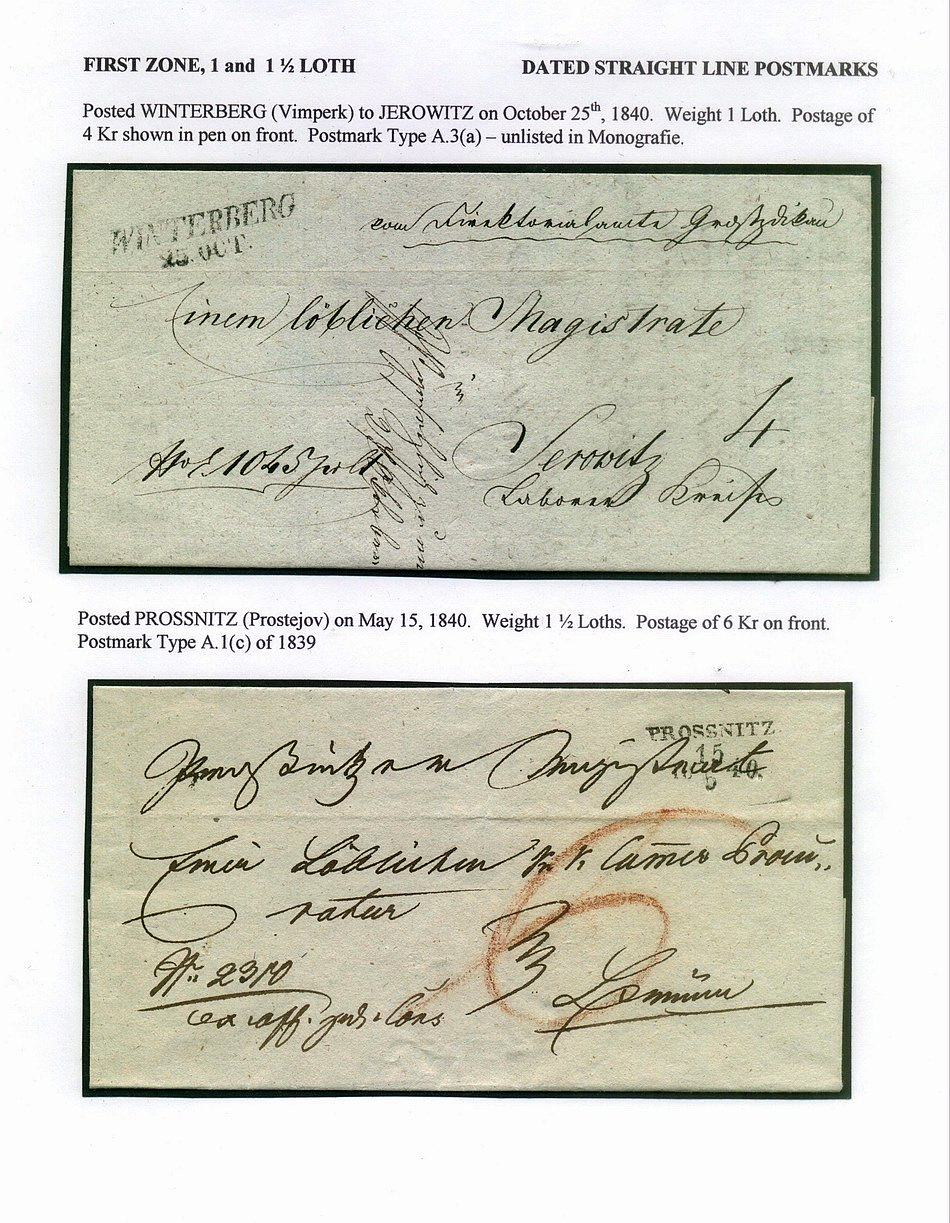 FIRST ZONE, 1 and 1 ½ LOTH
DATED STRAIGHT LINE POSTMARKS
Posted WINTERBERG (Vimperk) to JEROWITZ on October 25th, 1840. Weight 1 Loth. Postage of
4 Kr shown in pen on front. Postmark Type A.3(a) – unlisted in Monografie.
WINTERBERG
25. OCT.
vom Direktorialamte Großzdikau
Einem löblichen Magistrate
4
Serowitz
Taborer Kreises
Posted PROSSNITZ (Prostejov) on May 15, 1840. Weight 1 ½ Loths. Postage of 6 Kr on front.
Postmark Type A.1(c) of 1839
PROSSNITZ
15
5 40.
Magistrat
Löblichen k. k. Cammer Procu
ratur
6
No. 2310